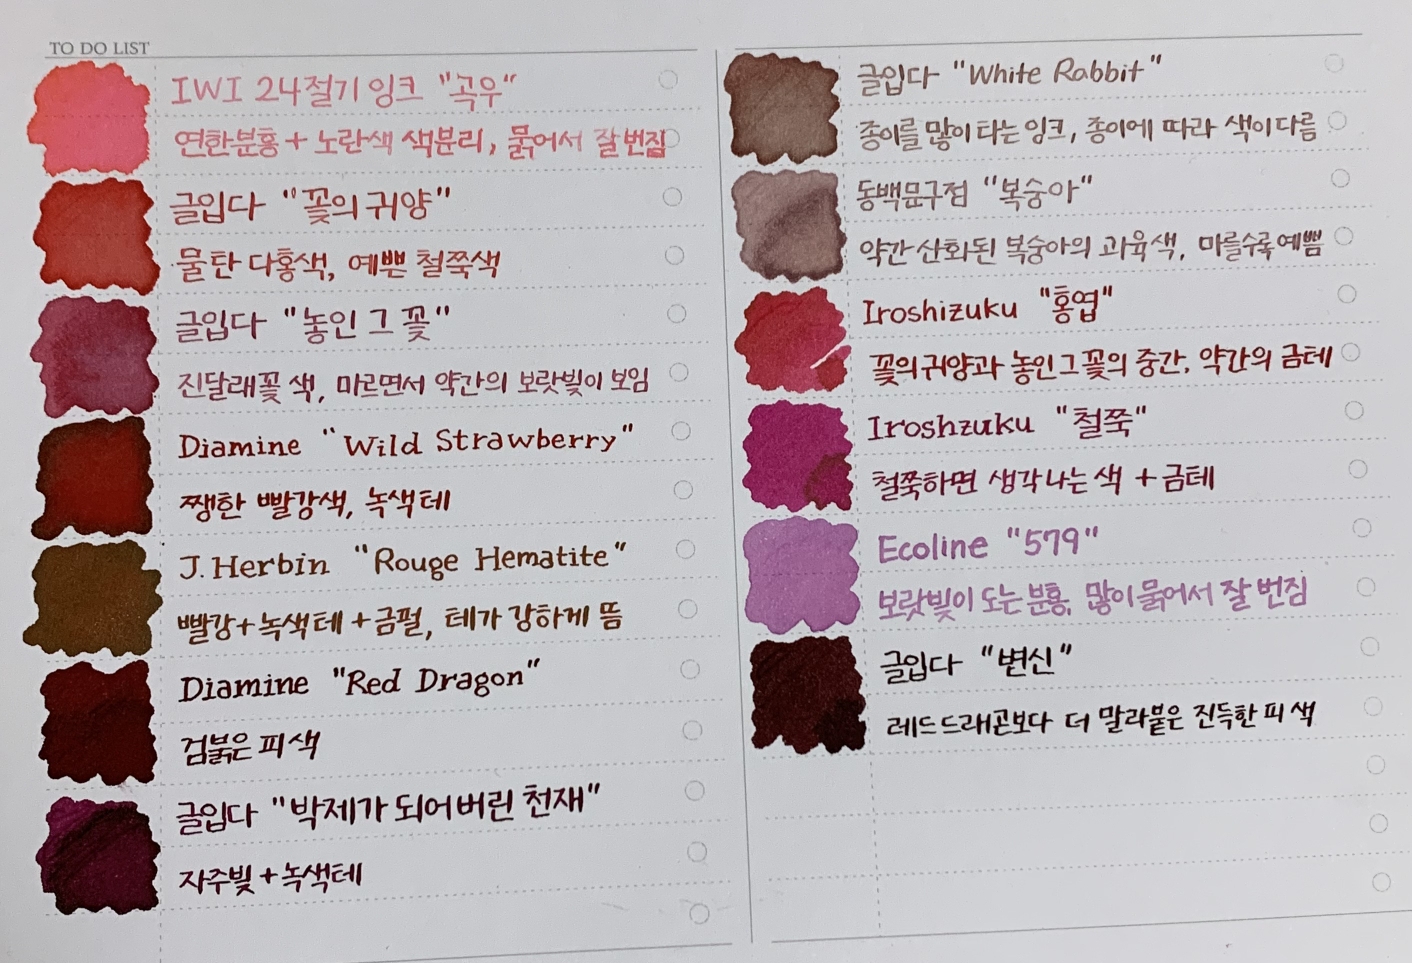 TO DO LIST
IWI 24절기 잉크 "곡우"
연한분홍 + 노란색 색분리, 묽어서 잘 번짐
글입다 "꽃의 귀양"
물탄 다홍색, 예쁜 철쭉색
글입다 "놓인 그 꽃"
진달래꽃 색, 마르면서 약간의 보랏빛이 보임
Diamine "Wild Strawberry"
쨍한 빨강색, 녹색테
J. Herbin "Rouge Hematite"
빨강+녹색테+금펄, 테가 강하게 뜸
Diamine "Red Dragon"
검붉은 피색
글입다 "박제가 되어버린 천재"
자주빛+녹색테
글입다 "White Rabbit"
종이를 많이 타는 잉크, 종이에 따라 색이 다름
동백문구점 "복숭아"
약간 산화된 복숭아의 과육색, 마를수록 예쁨
Iroshizuku "홍엽"
꽃의 귀양과 놓인 그 꽃의 중간, 약간의 금테
Iroshzuku "철쭉"
철쭉하면 생각나는 색 + 금테
Ecoline "579"
보랏빛이 도는 분홍, 많이 묽어서 잘 번짐
글입다 "변신"
레드드래곤보다 더 말라붙은 진득한 피색